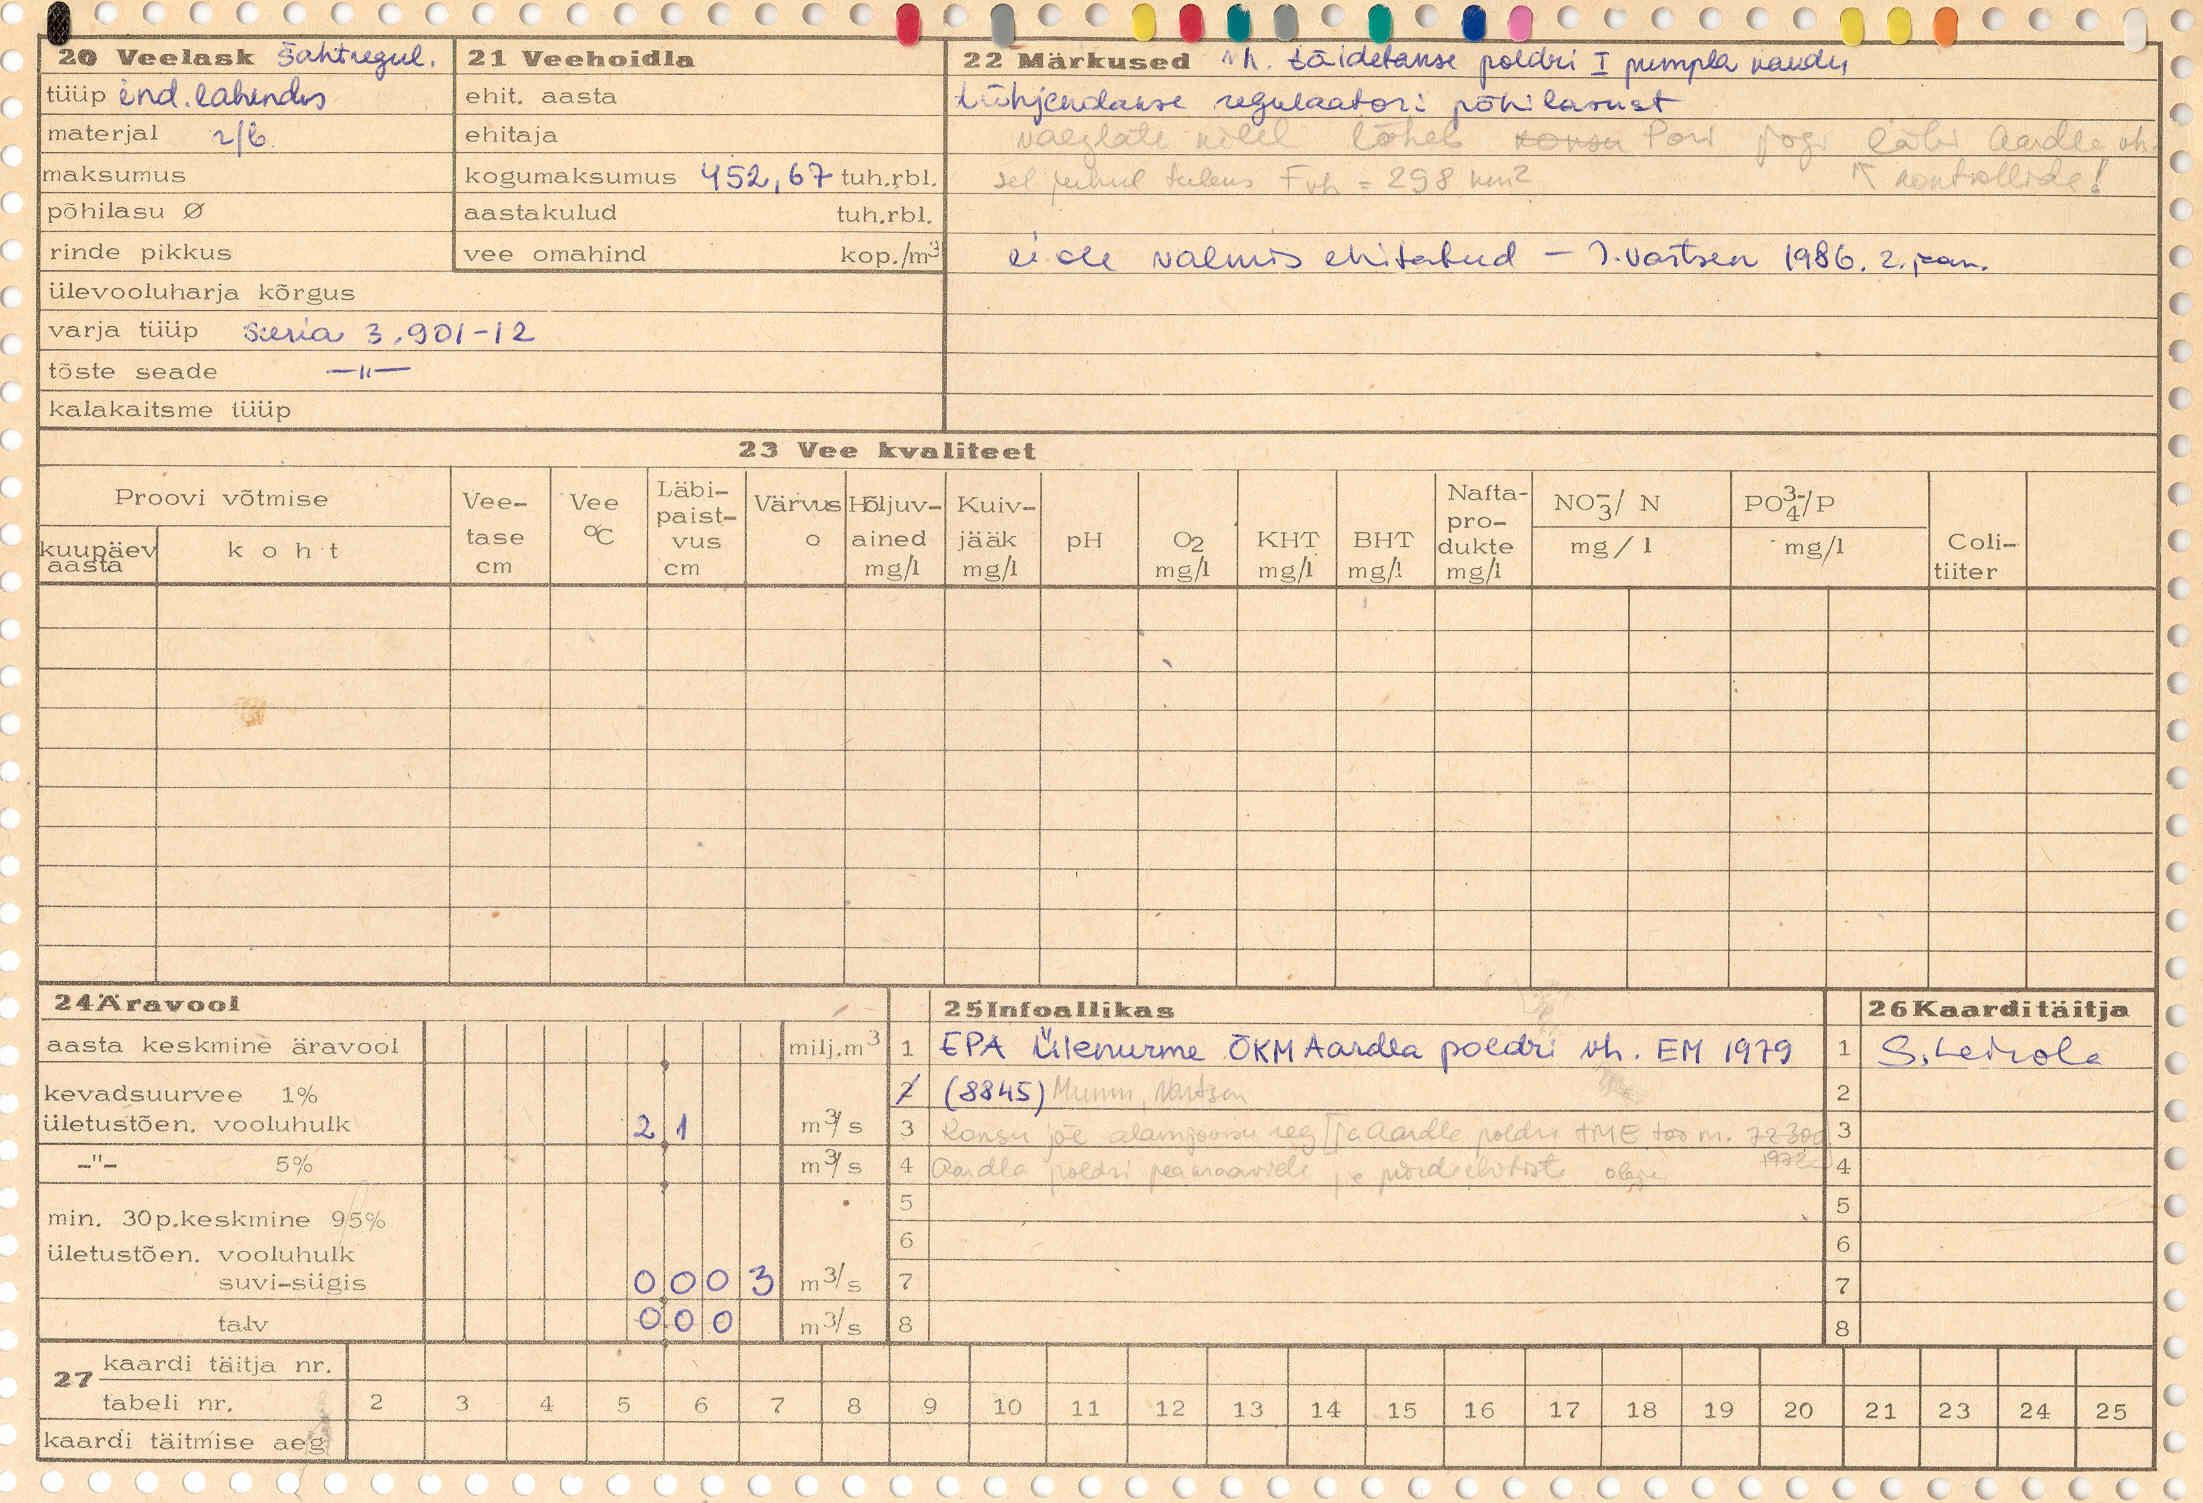 20 Veelask šahtregul.
tüüp ind. lahendus
materjal r/b
maksumus
põhilasu Ø
rinde pikkus
ülevooluharja kõrgus
varja tüüp seeria 3.901-12
tõste seade —"—
kalakaitsme tüüp
21 Veehoidla
ehit. aasta
ehitaja
kogumaksumus 452,67 tuh.rbl.
aastakulud tuh.rbl.
vee omahind kop./m³
22 Märkused vh. täidetakse poldri I pumpla kaudu
tühjendakse regulaatori põhilasust
läheb Pori jõgi läbi Aardla vh.
sel juhul tuleks F vh = 298 km² ↖ kontrollida!
ei ole valmis ehitatud – J. Vartsen 1986. 2. jaan.
23 Vee kvaliteet
Proovi võtmise
kuupäev aasta
koht
Vee-tase cm
Vee °C
Läbi-paist-vus cm
Värvus o
Hõljuv-ained mg/l
Kuiv-jääk mg/l
pH
O2 mg/l
KHT mg/l
BHT mg/l
Nafta-pro-dukte mg/l
NO3⁻/ N mg/l
PO4³⁻/P mg/l
Coli-tiiter
24 Äravool
aasta keskmine äravool milj.m³
kevadsuurvee 1%
ületustõen. vooluhulk 2 1 m³/s
-"- 5% m³/s
min. 30p.keskmine 95%
ületustõen. vooluhulk
suvi-sügis 0 0 0 3 m³/s
talv 0 0 0 m³/s
25 Infoallikas
1 EPA Ülenurme ÕKM Aardla poldri vh. EM 1979
2 (8845) Mumm, Vartsen
3 Konsu jõe alamjooksu reg ja Aardla poldri TME töö nr. 72300
1972
4 Aardla poldri peakraavide ja
5
6
7
8
26 Kaarditäitja
1 S. Leikola
2
3
4
5
6
7
8
27 kaardi täitja nr.
tabeli nr. 2 3 4 5 6 7 8 9 10 11 12 13 14 15 16 17 18 19 20 21 23 24 25
kaardi täitmise aeg